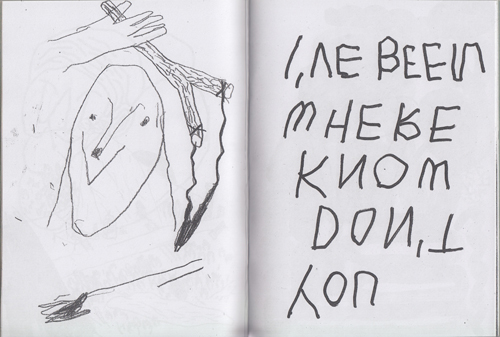 YOU
DON'T
KNOW
WHERE
I'VE BEEN